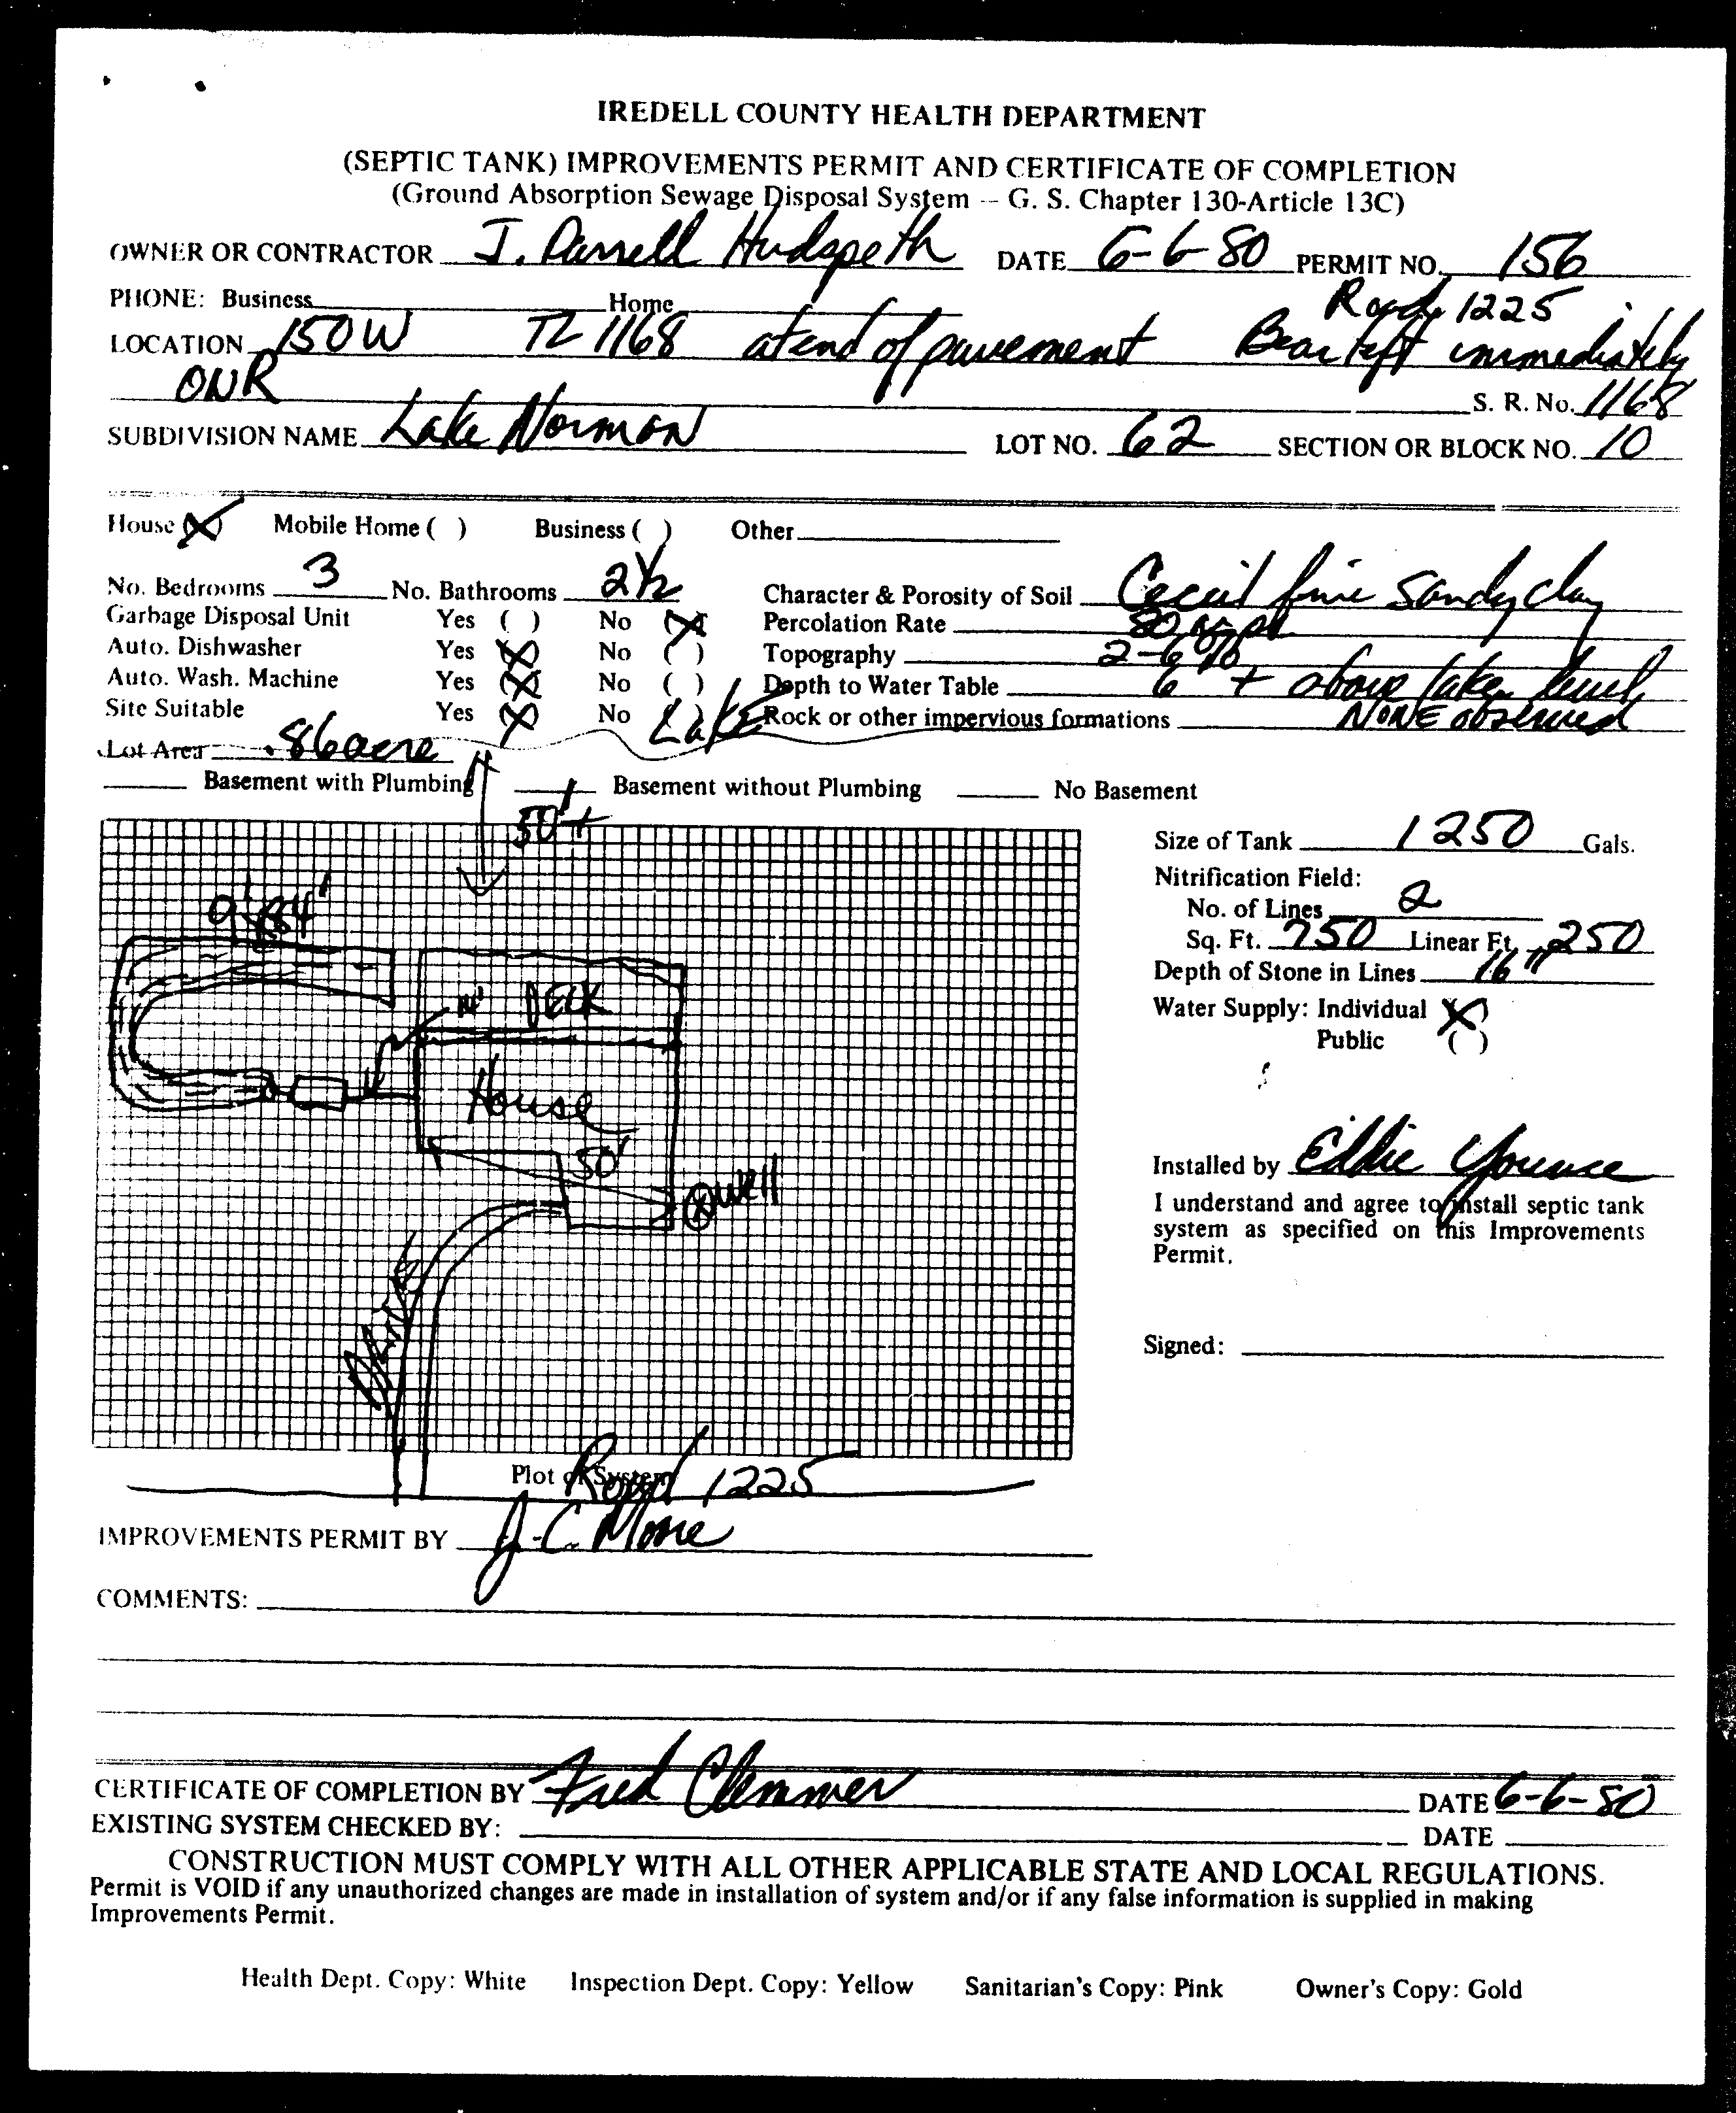 IREDELL COUNTY HEALTH DEPARTMENT
(SEPTIC TANK) IMPROVEMENTS PERMIT AND CERTIFICATE OF COMPLETION
(Ground Absorption Sewage Disposal System -- G. S. Chapter 130-Article 13C)
OWNER OR CONTRACTOR J. Darrell Hudspeth DATE 6-6-80 PERMIT NO. 156
PHONE: Business Home
Road 1225
LOCATION 150W TL 1168 at end of pavement Bear left immediately
ONR
S. R. No. 1168
SUBDIVISION NAME Lake Norman LOT NO. 62 SECTION OR BLOCK NO. 10
House (X) Mobile Home ( ) Business ( ) Other
No. Bedrooms 3 No. Bathrooms 2 1/2 Character & Porosity of Soil Cecil fine sandy clay
Garbage Disposal Unit Yes ( ) No (X) Percolation Rate
Auto. Dishwasher Yes (X) No ( ) Topography 2-6%
Auto. Wash. Machine Yes (X) No ( ) Depth to Water Table 6 + above lake level
Site Suitable Yes (X) No ( ) Lake Rock or other impervious formations NONE observed
Lot Area .86 acre
Basement with Plumbing Basement without Plumbing No Basement
50'+
Size of Tank 1250 Gals.
Nitrification Field:
No. of Lines 2
Sq. Ft. 750 Linear Ft. 250
Depth of Stone in Lines 16"
Water Supply: Individual (X)
Public ( )
DECK
House
50'
Well
Drive
Installed by Eddie Younce
I understand and agree to install septic tank
system as specified on this Improvements
Permit.
Signed:
Plot of System
Road 1225
IMPROVEMENTS PERMIT BY J. C. Moore
COMMENTS:
CERTIFICATE OF COMPLETION BY Fred Clemmer DATE 6-6-80
EXISTING SYSTEM CHECKED BY: DATE
CONSTRUCTION MUST COMPLY WITH ALL OTHER APPLICABLE STATE AND LOCAL REGULATIONS.
Permit is VOID if any unauthorized changes are made in installation of system and/or if any false information is supplied in making
Improvements Permit.
Health Dept. Copy: White Inspection Dept. Copy: Yellow Sanitarian's Copy: Pink Owner's Copy: Gold